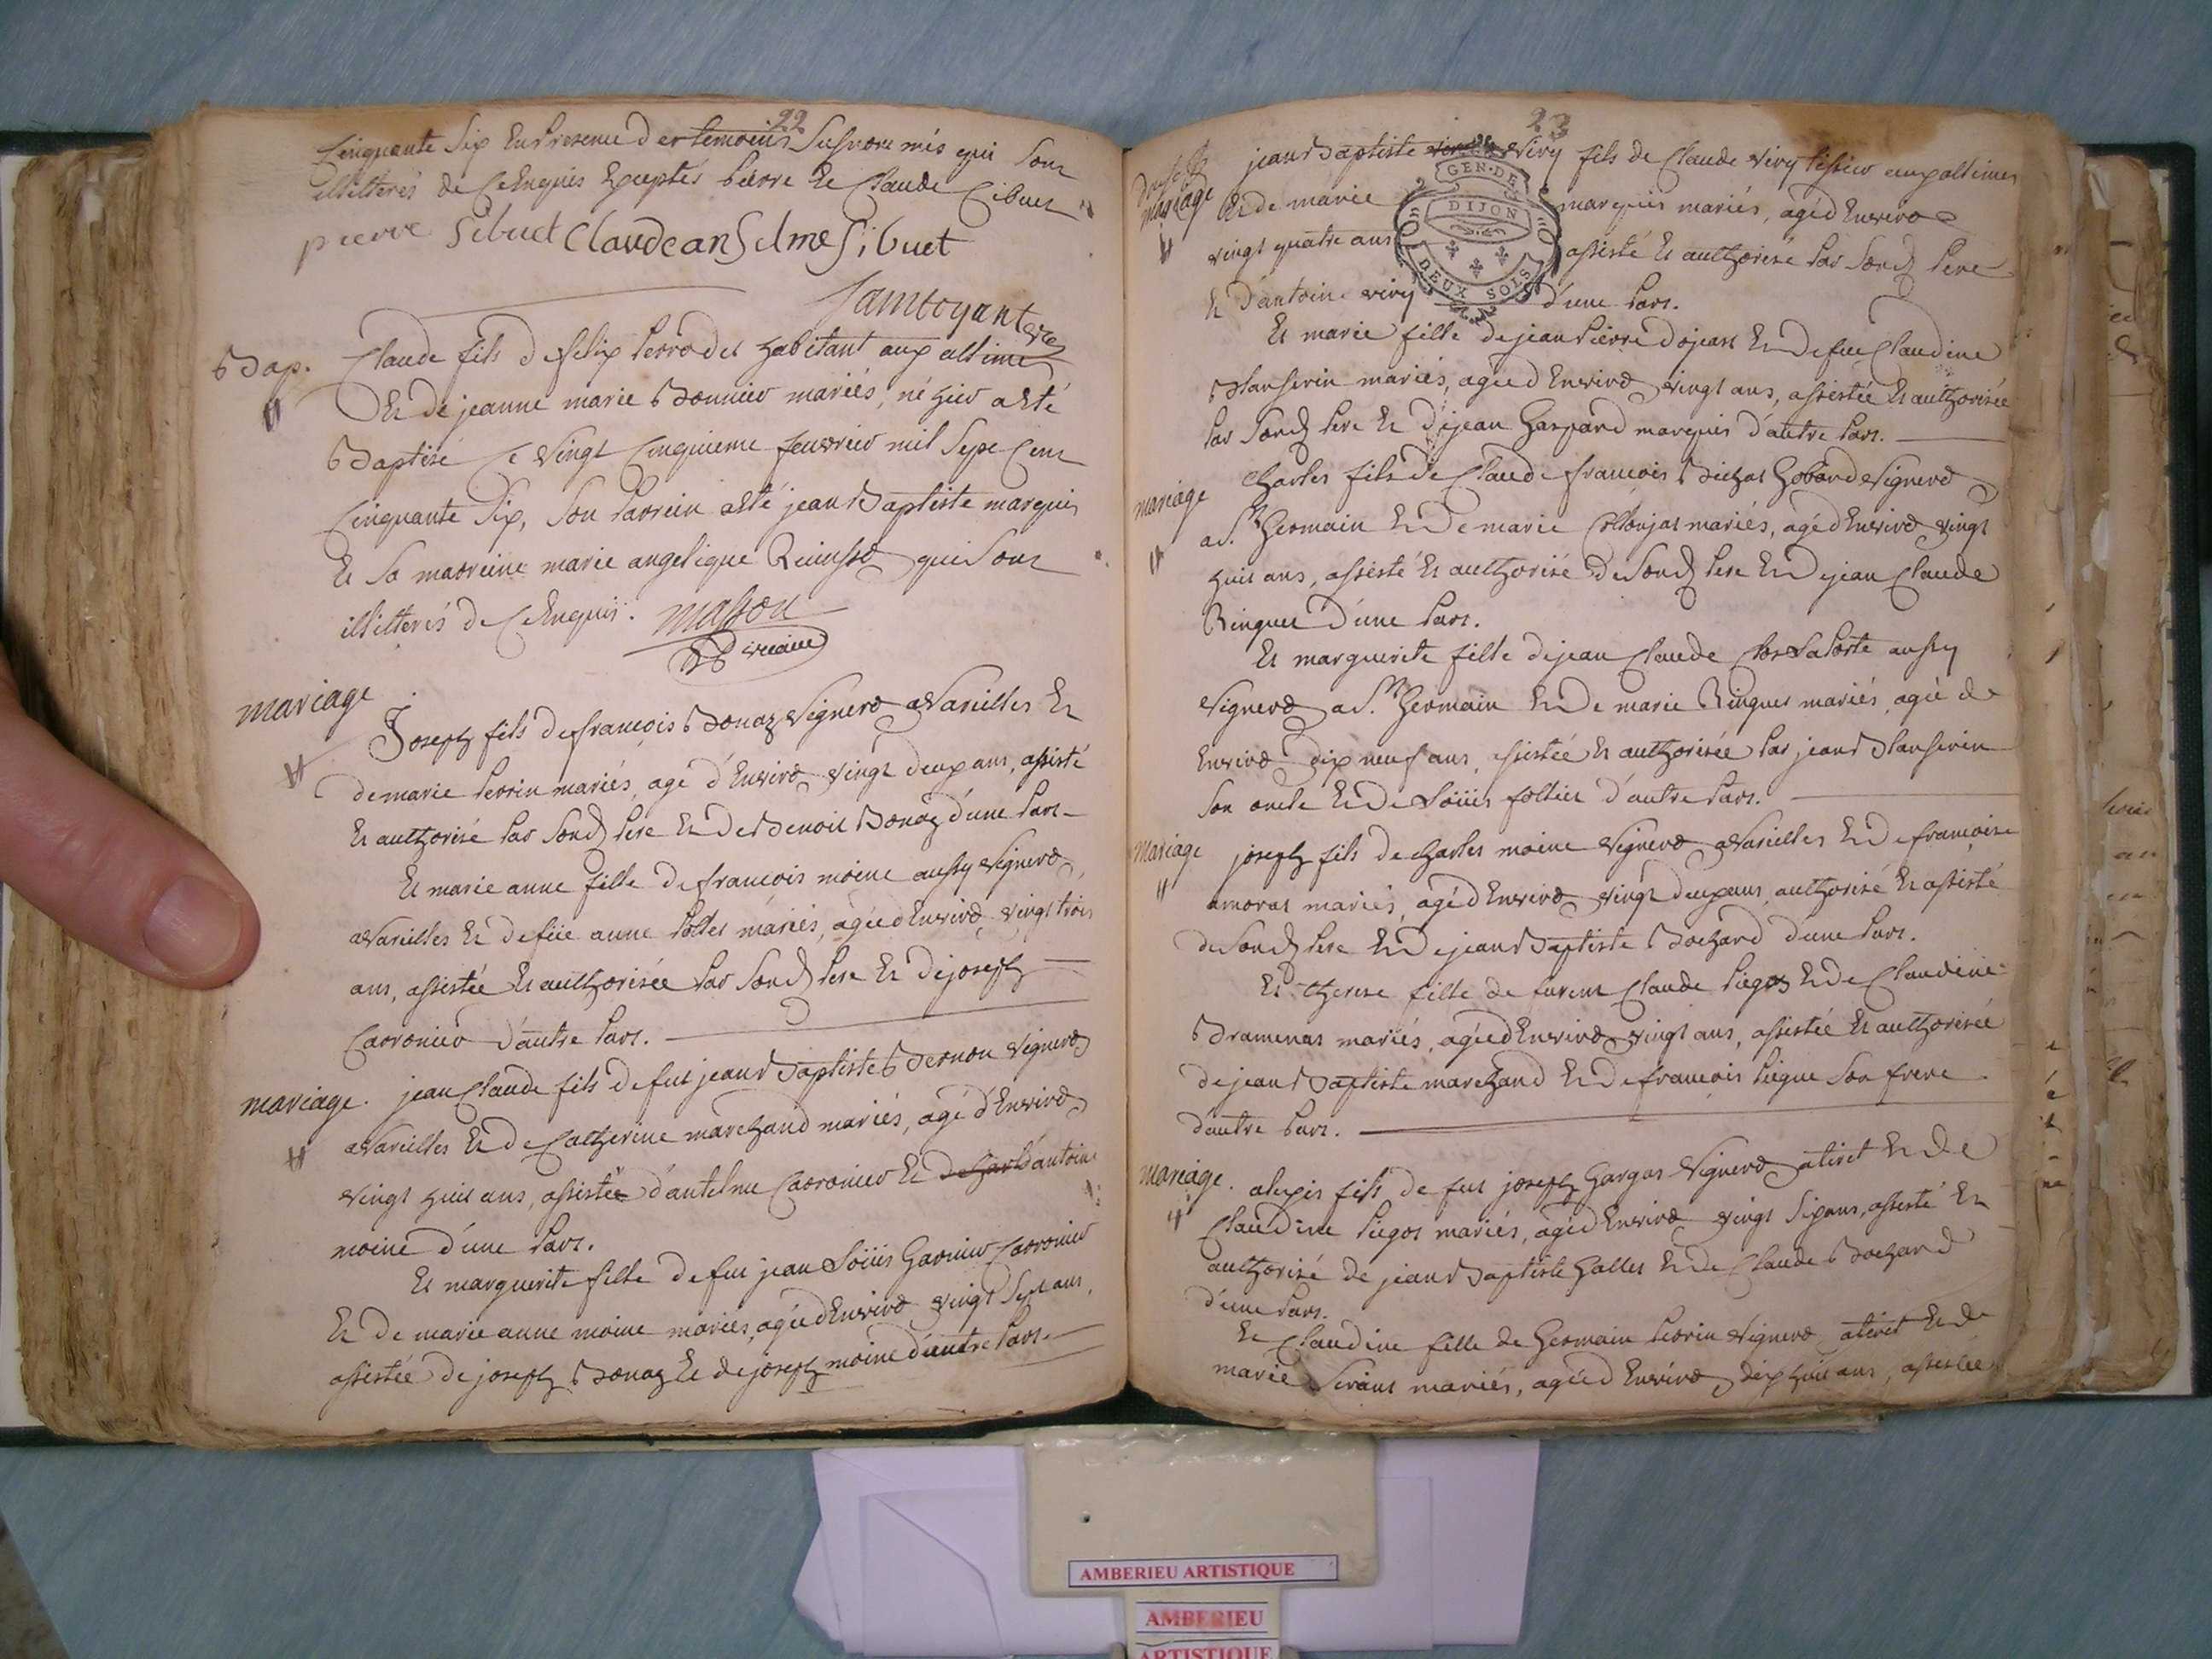 22
Cinquante Six En Presence des temoins Susnommés qui Sont
illitterés de Ce Enquis Exceptés pierre Et Claude Cibuet
pierre Sibuet Claude anselme Sibuet
Bap. Claude fils de felix Perrodet habitant aux allimes
Et de jeanne marie Bonnier mariés, né hier a Eté
Baptisé Ce vingt Cinquieme feuvrier mil Sept Cent
Cinquante Six, Son Parrein a Eté jean Baptiste marquis
Et Sa marreine marie angelique qui Sont
illitterés de Ce Enquis. masson
vicaire
mariage
Joseph fils de francois Bonaz vigneron a Vareilles Et
de marie Perrin mariés, agé d'Environ vingt deux ans, assisté
Et authorisé Par Sond Pere Et de Benoit Bonaz d'une Part
Et marie anne fille de francois moine aussy vigneron
a Vareilles Et de füe anne Pollet mariés, agée d'Environ vingt trois
ans, assistée Et authorisée Par Sond Pere Et de joseph
Carronier d'autre Part.
mariage. jean Claude fils de fut jean Baptiste Bernon vigneron
a Vareilles Et de Catherine marchand mariés, agé d'Environ
vingt huit ans, assisté d'antelme Carronier Et d'antoine
moine d'une Part.
Et marguerite fille de fut jean Loüis Garnier Carronier
Et de marie anne moine mariés, agée d'Environ vingt Sept ans,
assistée de joseph Bonaz Et de joseph moine d'autre Part.
23
jean Baptiste viry fils de Claude viry tissier aux allimes
mariage Et de marie marquis mariés, agé d'Environ
vingt quatre ans assisté Et authorisé Par Sond Pere
Et d'antoine viry d'une Part.
GEN. DE
DIJON
DEUX SOLS
Et marie fille de jean Pierre Dojeat Et de fue Claudine
Blanserin mariés, agée d'Environ vingt ans, assistée Et authorisée
Par Sond Pere Et de jean Gaspard marquis d'autre Part.
mariage Charles fils de Claude francois Bichat Gobard vigneron
a St. Germain Et de marie mariés, agé d'Environ vingt
huit ans, assisté Et authorisé de Sond Pere Et de jean Claude
Ringuet d'une Part.
Et marguerite fille de jean Claude LaPorte aussy
vigneron a St. Germain Et de marie Ringuet mariés, agée de
Environ dix neuf ans, assistée Et authorisée Par jean Blanserin
Son oncle Et de Loüis follier d'autre Part.
mariage joseph fils de charles moine vigneron a Vareilles Et de francoise
amorat mariés, agé d'Environ vingt deux ans, authorisé Et assisté
de Sond Pere Et de jean Baptiste Bochard d'une Part.
Et therese fille de furent Claude Piegos Et de Claudine
Bramenas mariés, agée d'Environ vingt ans, assistée Et authorisée
de jean Baptiste marchand Et de francois Piegue Son frere
d'autre Part.
mariage. alexis fils de fut joseph Gargas vigneron a tiret Et de
Claudine Piegos mariés, agé d'Environ vingt Six ans, assisté Et
authorisé de jean Baptiste hallet Et de Claude Bochard
d'une Part.
Et Claudine fille de Germain Perrin vigneron a tiret Et de
marie mariés, agée d'Environ dix huit ans, assistée
AMBERIEU ARTISTIQUE
AMBERIEU
ARTISTIQUE